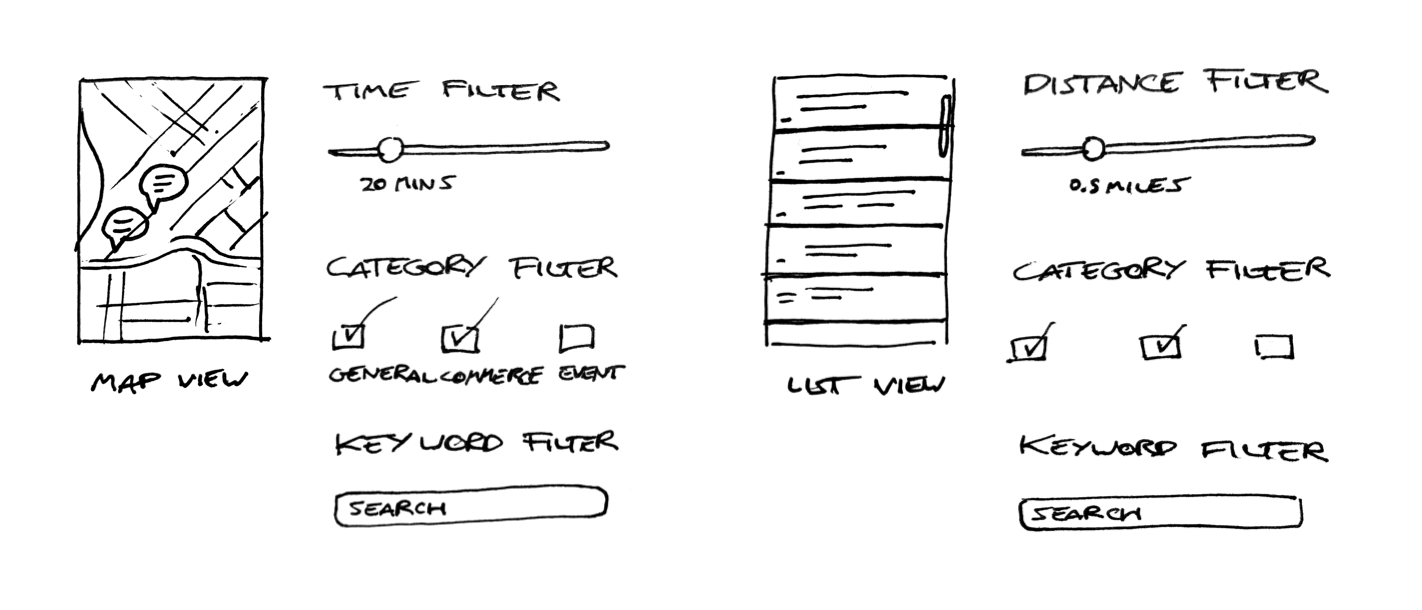 TIME FILTER
20 MINS
CATEGORY FILTER
GENERAL COMMERCE EVENT
KEYWORD FILTER
SEARCH
MAP VIEW
DISTANCE FILTER
0.5 MILES
CATEGORY FILTER
KEYWORD FILTER
SEARCH
LIST VIEW